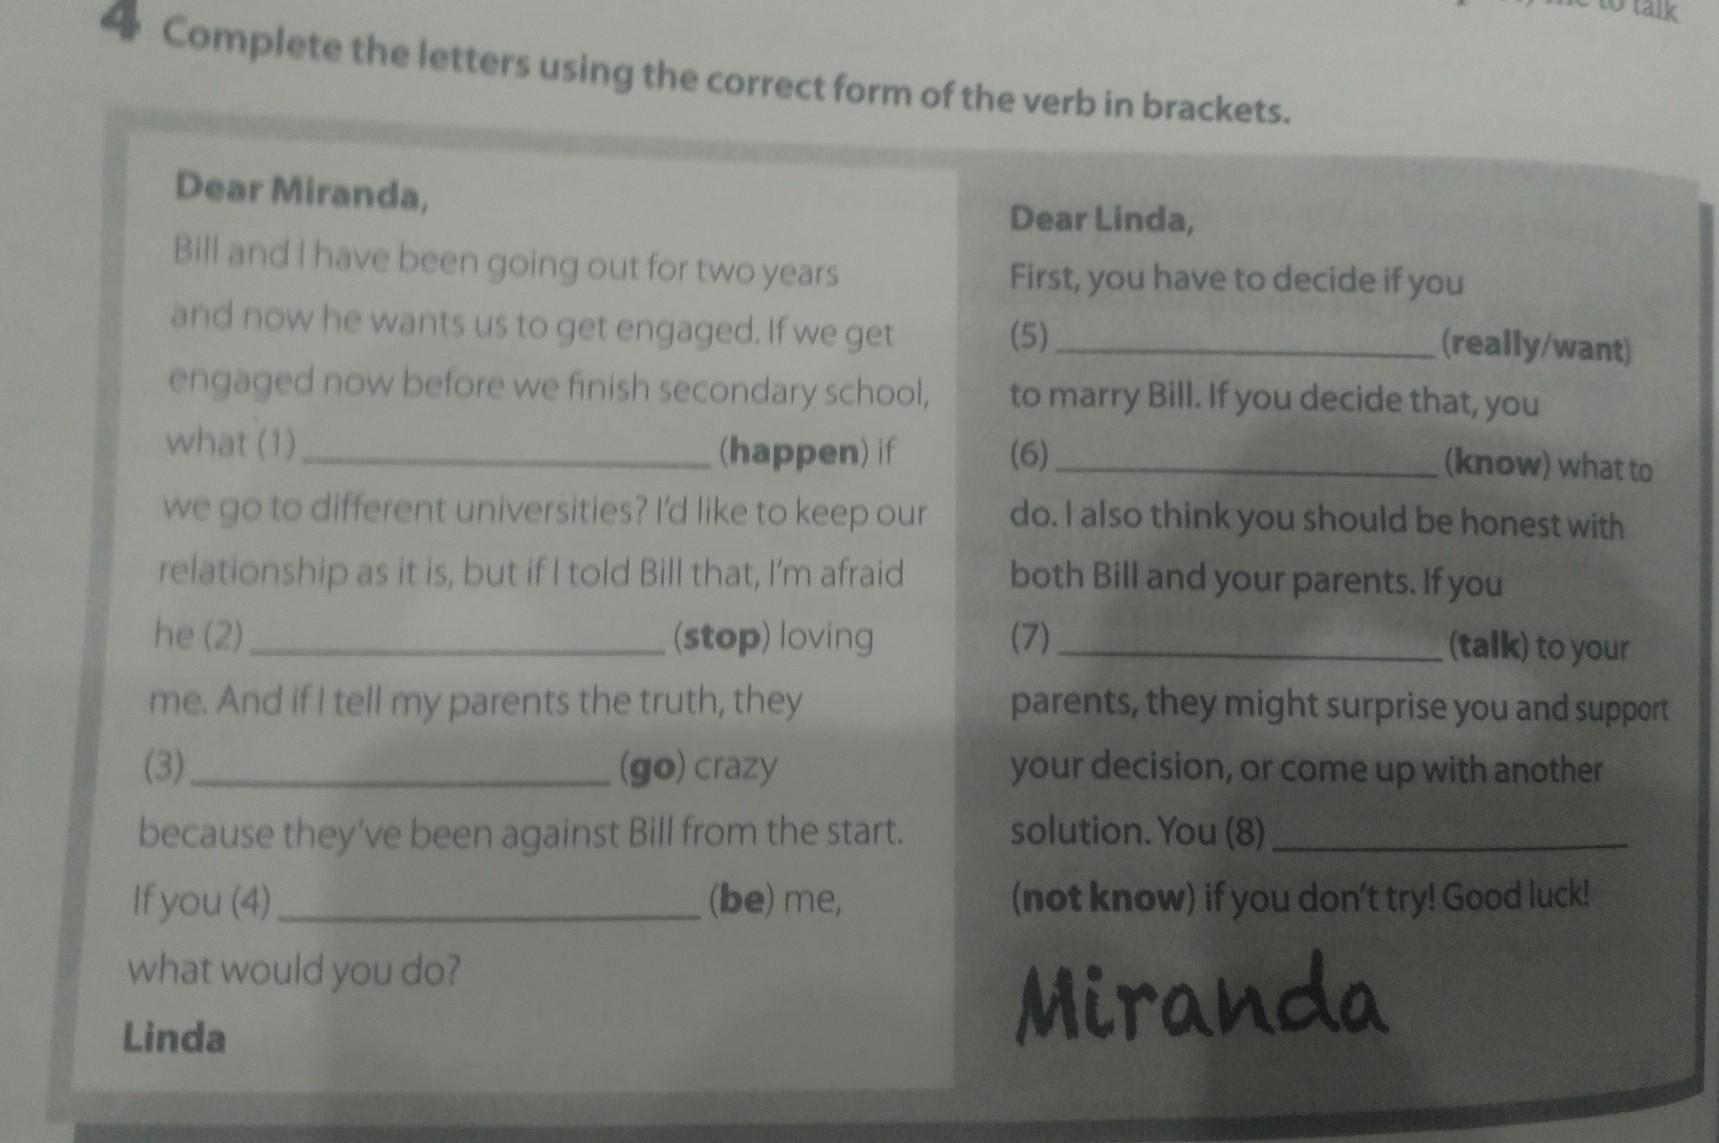 to talk
4 Complete the letters using the correct form of the verb in brackets.
Dear Miranda,
Bill and I have been going out for two years
and now he wants us to get engaged. If we get
engaged now before we finish secondary school,
what (1)____________ (happen) if
we go to different universities? I'd like to keep our
relationship as it is, but if I told Bill that, I'm afraid
he (2)____________ (stop) loving
me. And if I tell my parents the truth, they
(3)____________ (go) crazy
because they've been against Bill from the start.
If you (4)____________ (be) me,
what would you do?
Linda
Dear Linda,
First, you have to decide if you
(5)____________ (really/want)
to marry Bill. If you decide that, you
(6)____________ (know) what to
do. I also think you should be honest with
both Bill and your parents. If you
(7)____________ (talk) to your
parents, they might surprise you and support
your decision, or come up with another
solution. You (8)____________
(not know) if you don't try! Good luck!
Miranda